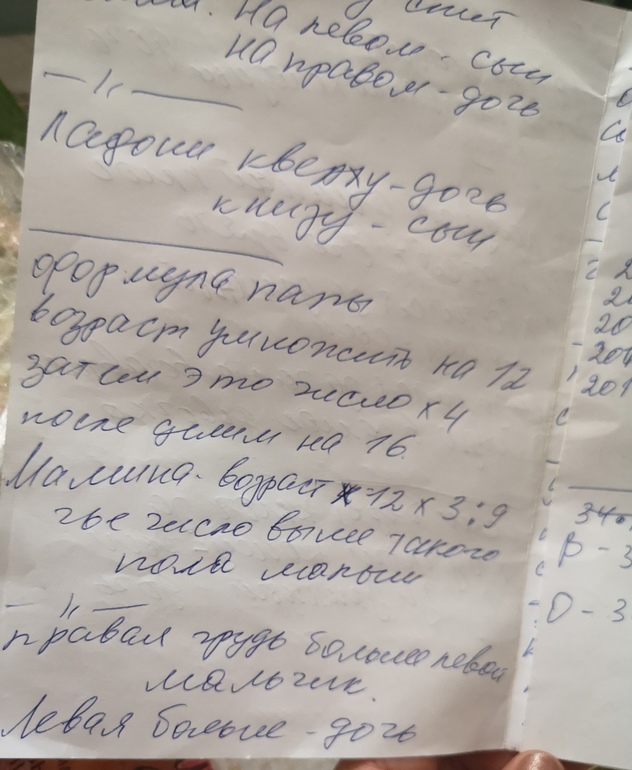 спит
На левом - сын
на правом - дочь
— " —
Ладони кверху - дочь
книзу - сын
Формула папы
возраст умножить на 12
затем это число х 4
после делим на 16.
Мамина - возраст х 12 х 3 : 9
чье число выше такого
пола малыш
— " —
правая грудь больше левой
мальчик.
Левая больше - дочь
20
201
201
34
В - 3
О - 3